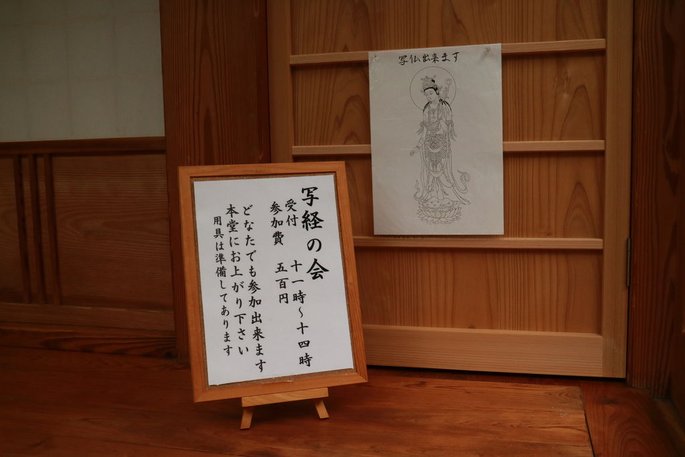 写仏出来ます
写経の会
受付 十一時~十四時
参加費 五百円
どなたでも参加出来ます
本堂にお上がり下さい
用具は準備してあります